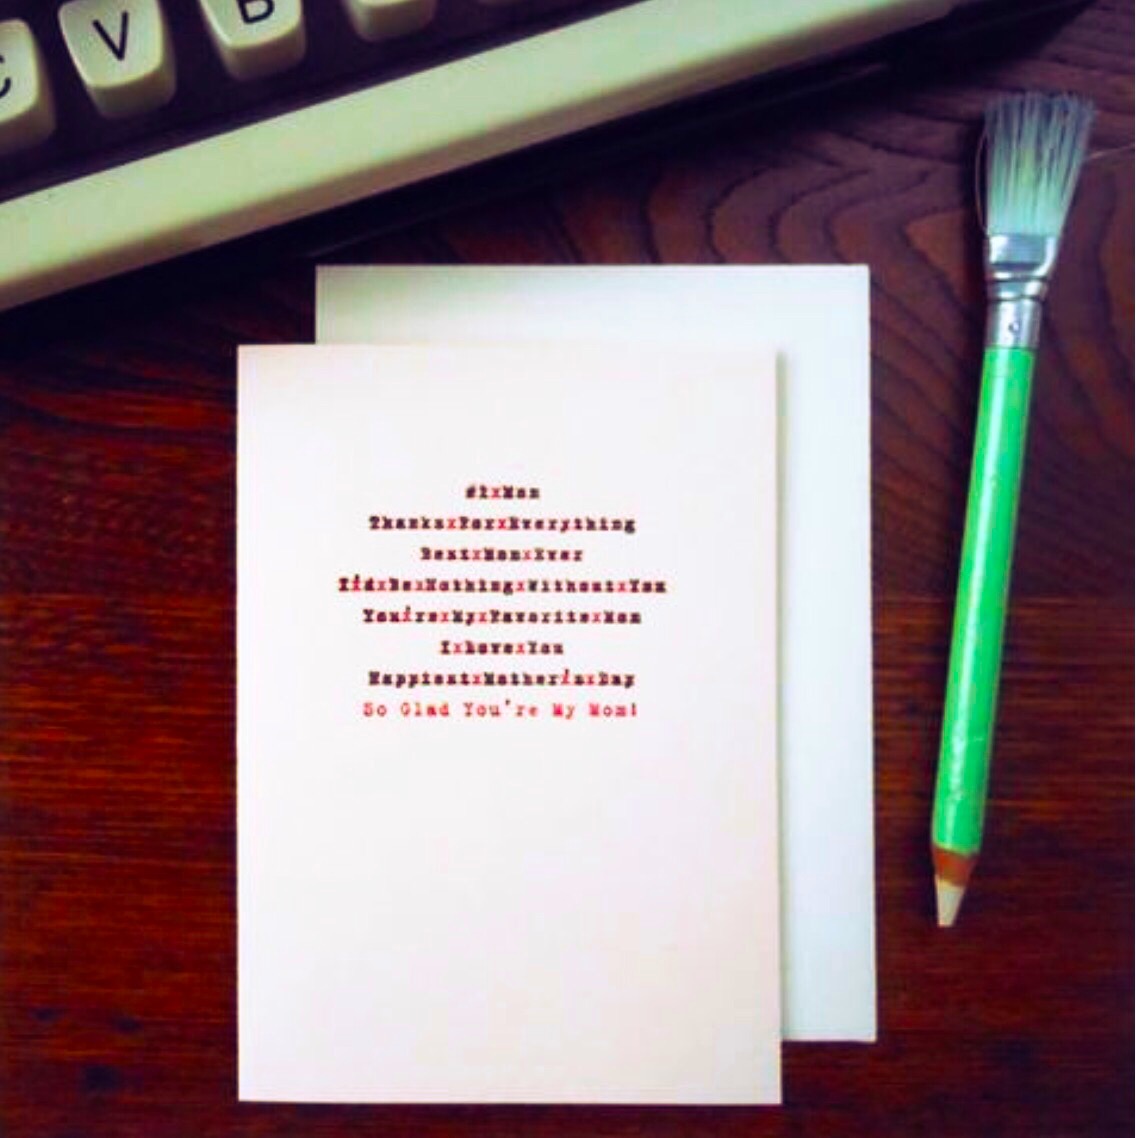 C V B
#1xMom
ThanksxForxEverything
BestxMomxEver
I'dxBexNothingxWithoutxYou
You'rexMyxFavoritexMom
IxLovexYou
HappiestxMother'sxDay
So Glad You're My Mom!